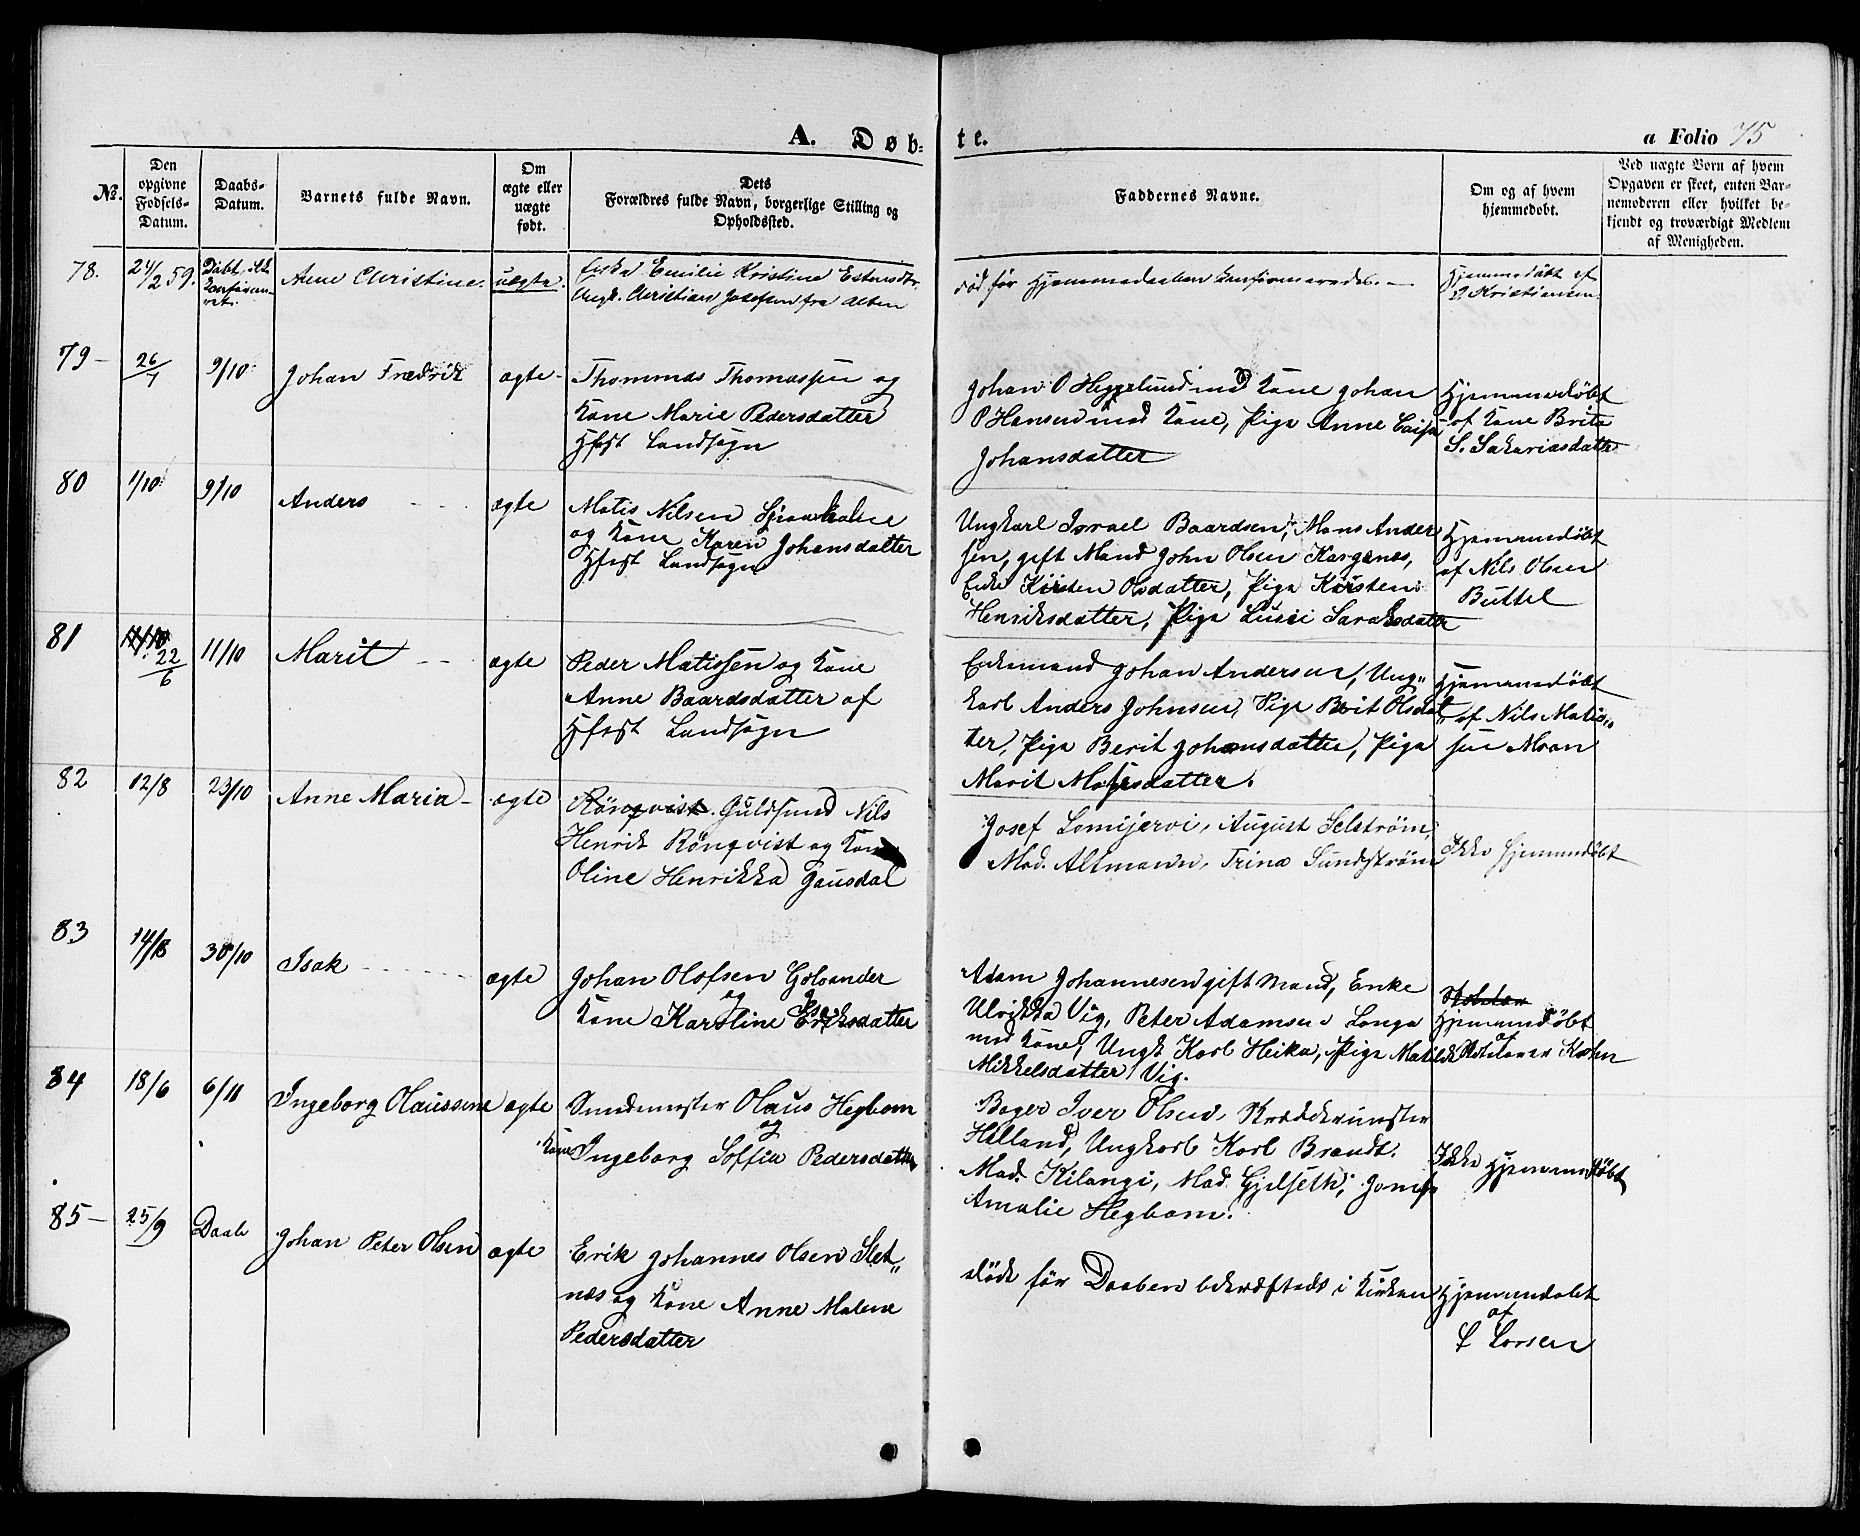 A. Døb-
te.
a Folio 75
No.
Den opgivne Fødsels-Datum.
Daabs-Datum.
Barnets fulde Navn.
Om ægte eller uægte født.
Dets Forældres fulde Navn, borgerlige Stilling og Opholdssted.
Faddernes Navne.
Om og af hvem hjemmedøbt.
Ved uægte Børn af hvem Opgaven er skeet, enten Barnemoderen eller hvilket bekjendt og troværdigt Medlem af Menigheden.
78.
24/2 59.
Anne Christine.
uægte.
Emilie Kristine
Ungk. Christian Josefsen fra Alten
død før Hjemmedaaben konfirmeredes.
Hjemmedøbt af
Kristiansen
79
26/7
9/10
Johan Fredrik
ægte
Thommas Thomassen og
Kone Marie Pedersdatter
Hfest Landsogn
Johan O Heggelund med Kone Johan
P Hansen med Kone, Pige Anne Caisa
Johansdatter
Hjemmedøbt
af Kone Brita
S. Sakariasdatter
80
1/10
9/10
Anders
ægte
Matis Nilsen
og Kone Karen Johansdatter
Hfest Landsogn
Ungkarl Israel Baardsen, Mons Ander
sen, gift Mand John Olsen Kargenes,
Enke Kirsten Olsdatter, Pige Kirsten
Henriksdatter, Pige Lussi Saraksdatter
Hjemmedøbt
af Nils Olsen
Buttel
81
22/6
11/10
Marit
ægte
Peder Matissen og Kone
Anne Baardsdatter af
Hfest Landsogn
Enkemand Johan Andersen, Ung-
karl Anders Johnsen, Pige Berit Olsdat
ter, Pige Berit Johansdatter, Pige
Marit Mathisdatter.
Hjemmedøbt
af Nils Matis-
sen Moan
82
12/8
23/10
Anne Maria
ægte
Rönqvist. Guldsmed Nils
Henrik Rönqvist og Kone
Oline Henrikka Gausdal
Josef Lomijervi, August Selström,
Mad. Altmann, Trina Sundström
Ikke hjemmedøbt
83
14/8
30/10
Isak
ægte
Johan Olofsen Golvander
og
Kone Karoline Eriksdatter
Adam Johannesen gift Mand, Enke
Ulrikka Vig, Peter Adamsen Longa
med Kone, Ungk Karl Heika, Pige Matilde
Mikkelsdatter Vig.
Hjemmedøbt
af
84
18/6
6/11
Ingeborg Olaussine
ægte
Smedemester Olaus Hegbom
og
Kone Ingeborg Soffia Pedersdatter
Bager Iver Olsen, Skreddermester
Helland, Ungkarl Karl Brandt.
Mad. Kilangi, Mad Gjelseth, Jomfr
Amalie Hegbom.
Ikke Hjemmedøbt
85
25/9
Daab
Johan Peter Olsen
ægte
Erik Johannes Olsen Slet-
næs og Kone Anne Malene
Pedersdatter
døde før Daaben bekræftedes i Kirken
Hjemmedøbt
af
L Larsen